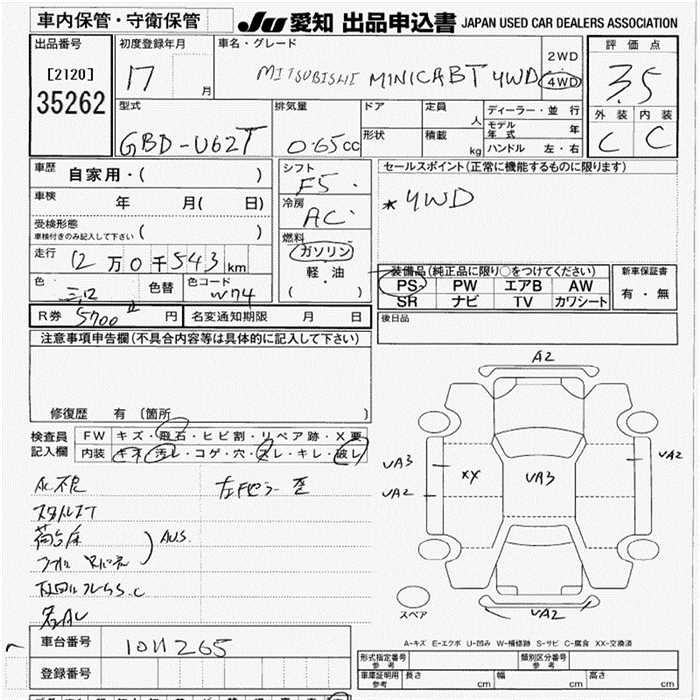 車内保管・守衛保管
JU 愛知 出品申込書 JAPAN USED CAR DEALERS ASSOCIATION
出品番号 初度登録年月 車名・グレード 評価点
[2120] 17 月 MITSUBISHI MINICAB T 4WD 2WD 4WD 3.5
35262
型式 排気量 ドア 定員 人 ディーラー・並行 外装 内装
GBD-U62T 0.65cc 形状 積載 kg モデル年式 年 C C
ハンドル 左・右
車歴 自家用・( ) シフト F5 セールスポイント(正常に機能するものに限ります)
車検 年 月( 日) 冷房 AC *4WD
受検形態 ( )
車検付きのみ記入して下さい
燃料
走行 12万0千543km ガソリン 装備品(純正品に限り○をつけてください) 新車保証書
軽・油 PS PW エアB AW 有・無
色 色替 色コード W74 ( ) SR ナビ TV カワシート
R券 5700 円 名変通知期限 月 日 後日品
注意事項申告欄(不具合内容等は具体的に記入して下さい)
修復歴 有 〔箇所 〕
検査員 FW キズ・飛石・ヒビ割・リペア跡・X要
記入欄 内装 キズ・汚レ・コゲ・穴・スレ・キレ・破レ
A2
UA3
UA2
XX
UA3
UA2
UA2
AC不良
AUS.
スペア
A-キズ E-エクボ U-凹み W-補修跡 S-サビ C-腐食 XX-交換済
車台番号 1011265
登録番号
形式指定番号 参考 類別区分番号 参考
車庫証明用 参考 長さ cm 幅 cm 高さ cm